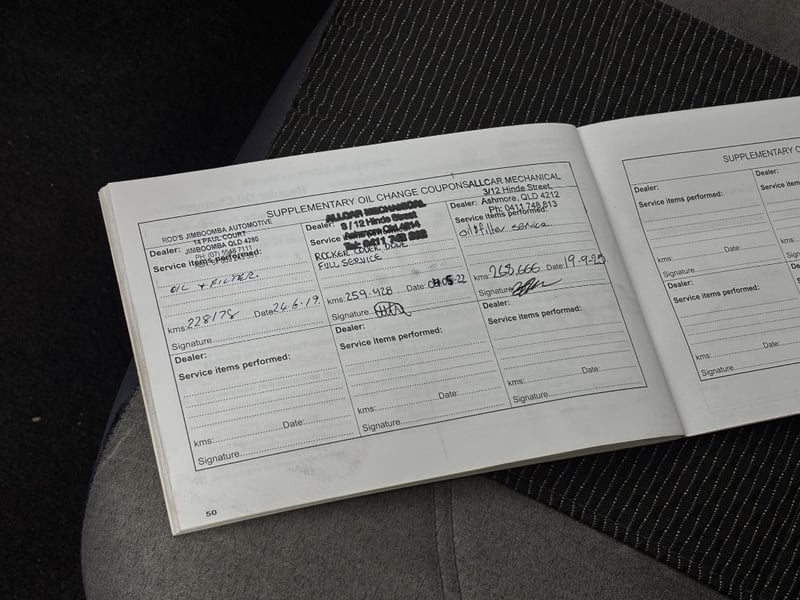 SUPPLEMENTARY OIL CHANGE COUPONS
ROD'S JIMBOOMBA AUTOMOTIVE
14 PAUL COURT
Dealer: JIMBOOMBA QLD 4280
PH: (07) 5548 7111
Service items performed:
OIL + FILTER.
kms: 228178 Date: 24.6.19
Signature
ALLCAR MECHANICAL
Dealer: 3 / 12 Hinde Street
Service
ROCKER COVER DONE
FULL SERVICE
kms: 259.428 Date: 22
Signature
ALLCAR MECHANICAL
3/12 Hinde Street,
Dealer: Ashmore, QLD 4212
Ph: 0411 748 813
Service items performed:
oil & filter service.
kms: 268,666 Date: 19-9-25
Signature
Dealer:
Service items performed:
kms: Date:
Signature
Dealer:
Service items performed:
kms: Date:
Signature
Dealer:
Service items performed:
kms: Date:
Signature
50
SUPPLEMENTARY O
Dealer:
Service items performed:
kms: Date:
Signature
Dealer:
Service
kms:
Signatu
Dealer:
Service items performed:
kms: Date:
Signature
Dealer:
Service
kms:
Signa